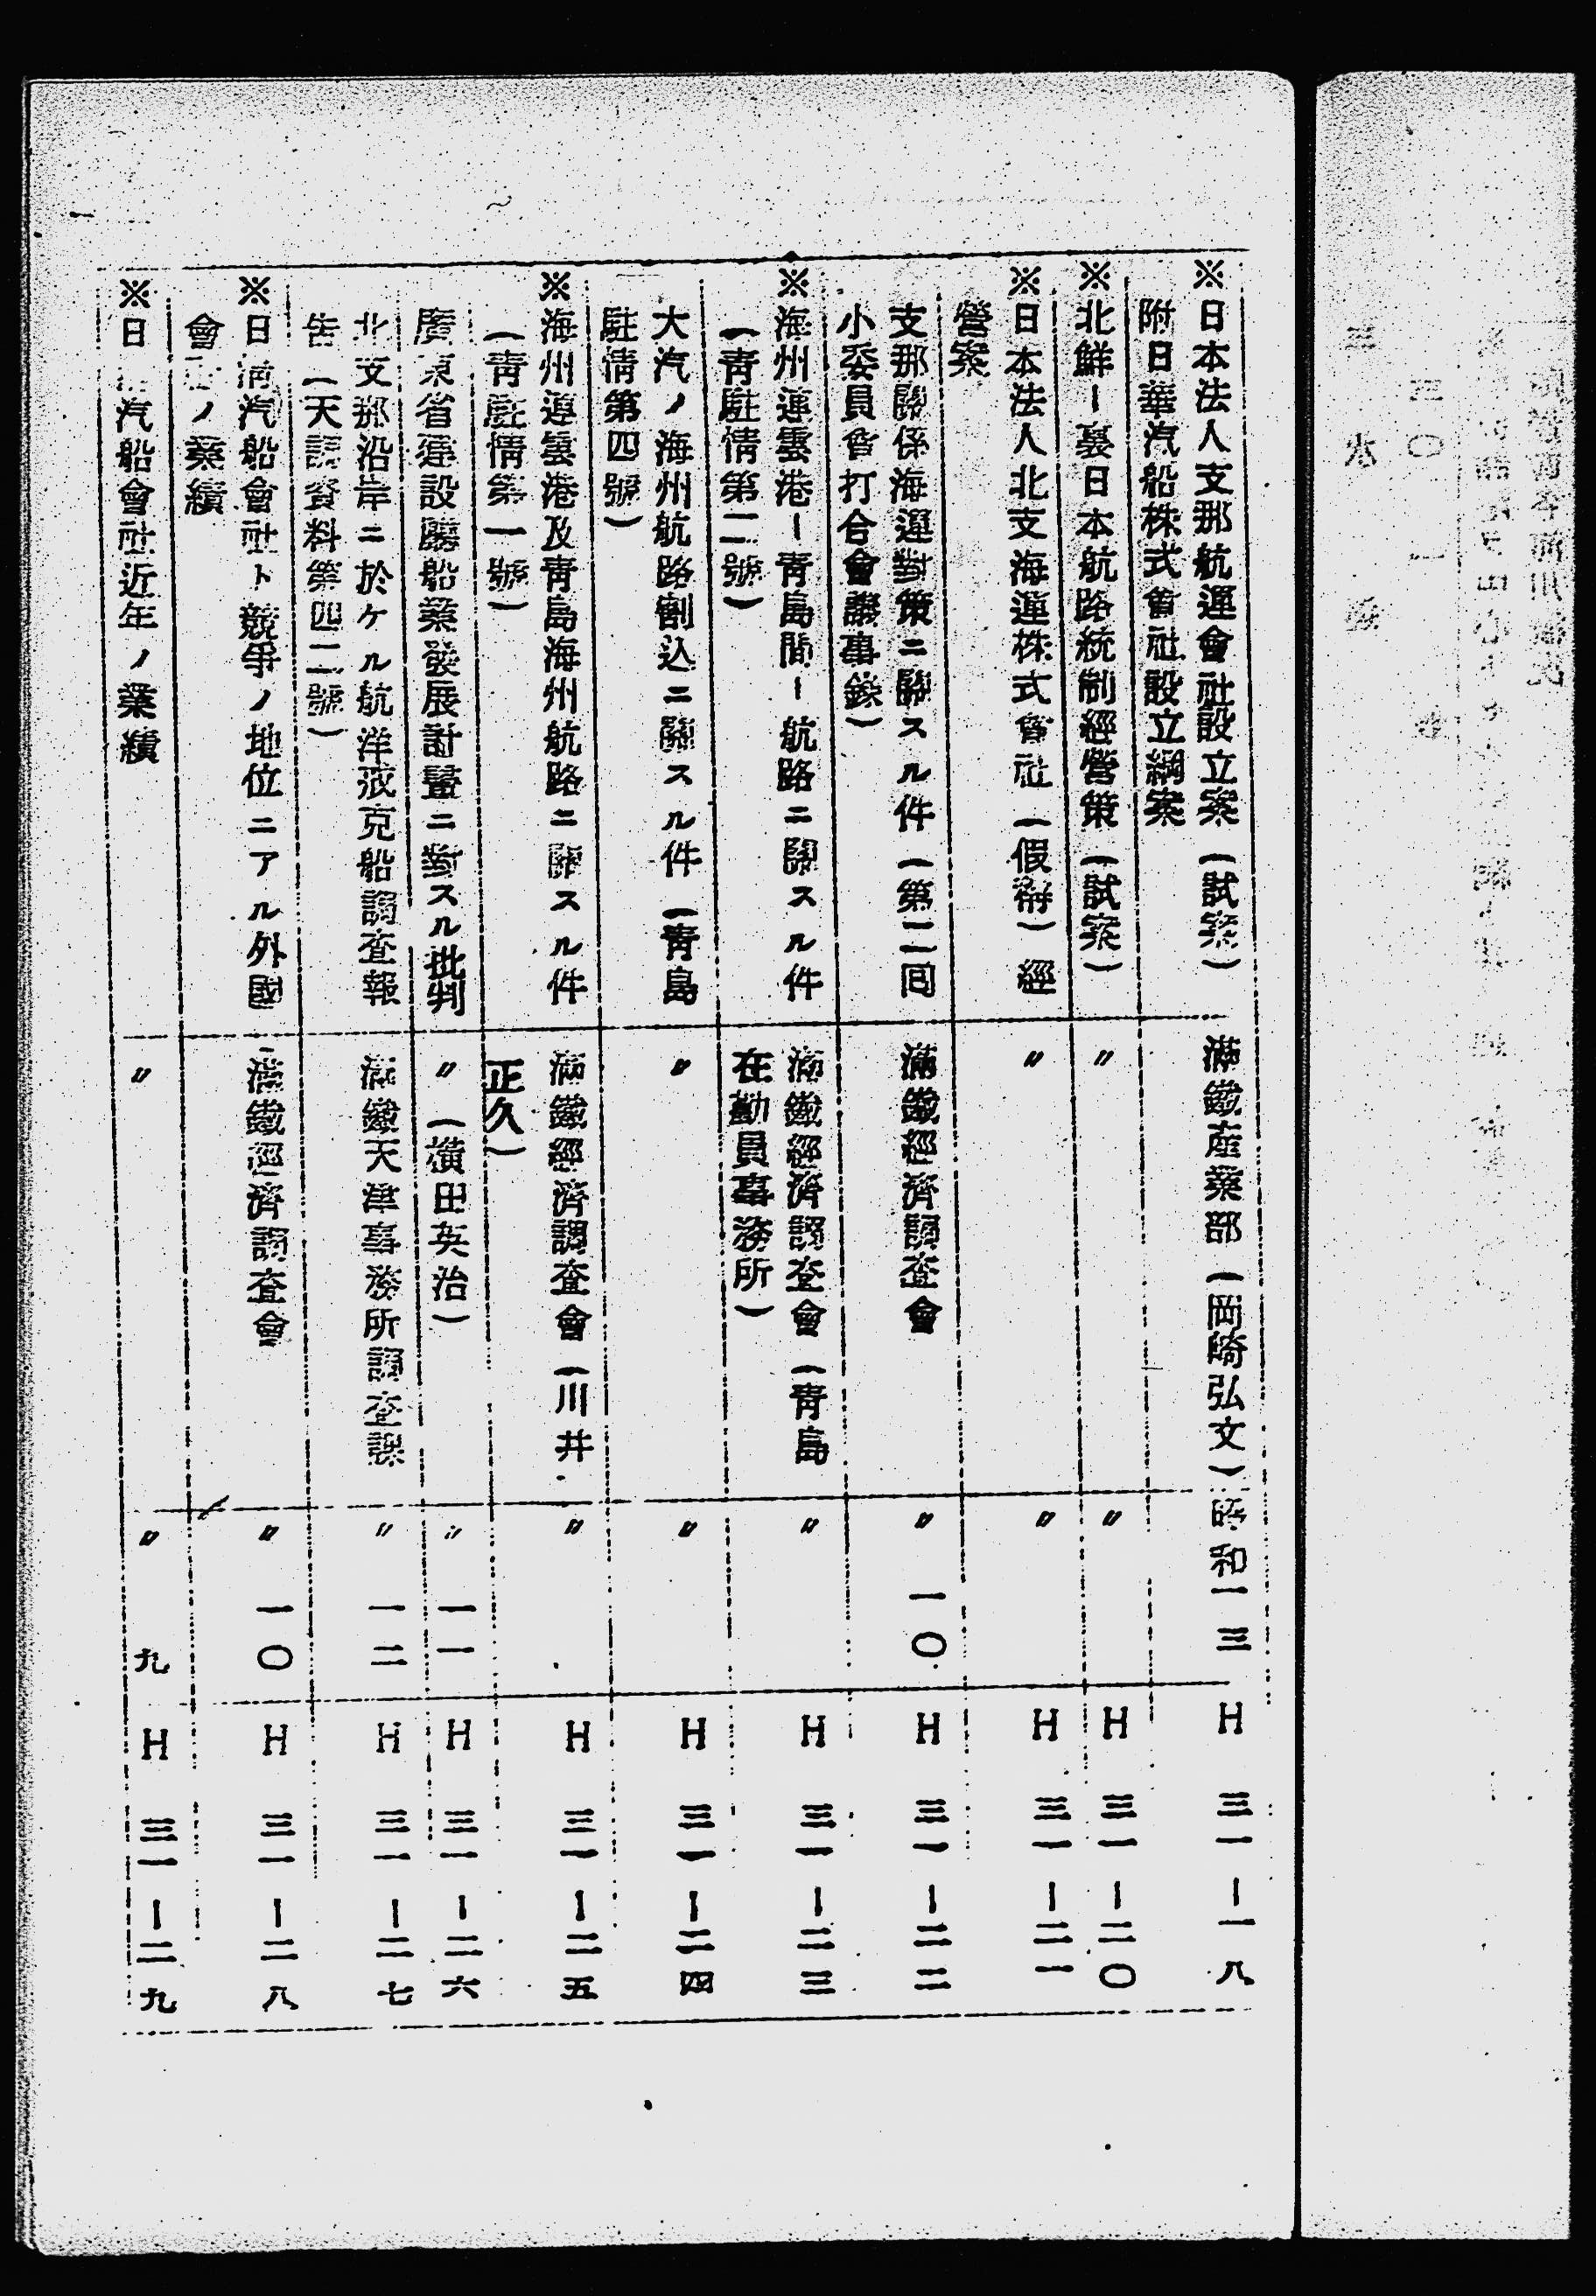 ※日本法人支那航運會社設立案(試案)
附日華汽船株式會社設立綱案
滿鐵産業部(岡崎弘文)
昭和一三
H三一ー一八
※北鮮ー裏日本航路統制經營策(試案)
〃
〃
H三一ー二〇
※日本法人北支海運株式會社(假稱)經
營案
〃
〃
H三一ー二一
支那關係海運對策ニ關スル件(第二回
小委員會打合會議事錄)
滿鐵經濟調査會
〃一〇
H三一ー二二
※海州連雲港ー靑島間ー航路ニ關スル件
(靑駐情第二號)
滿鐵經濟調査會(靑島
在勤員事務所)
〃
H三一ー二三
大汽ノ海州航路割込ニ關スル件(靑島
駐情第四號)
〃
〃
H三一ー二四
※海州連雲港及靑島海州航路ニ關スル件
(靑駐情第一號)
滿鐵經濟調査會(川井
正久)
〃
H三一ー二五
廣東省建設廳船業發展計畫ニ對スル批判
〃(横田英治)
〃一一
H三一ー二六
北支那沿岸ニ於ケル航洋戎克船調査報
告(天調資料第四二號)
滿鐵天津事務所調査課
〃一二
H三一ー二七
※日淸汽船會社ト競爭ノ地位ニアル外國
會社ノ業績
滿鐵經濟調査會
〃一〇
H三一ー二八
※日淸汽船會社近年ノ業績
〃
〃九
H三一ー二九